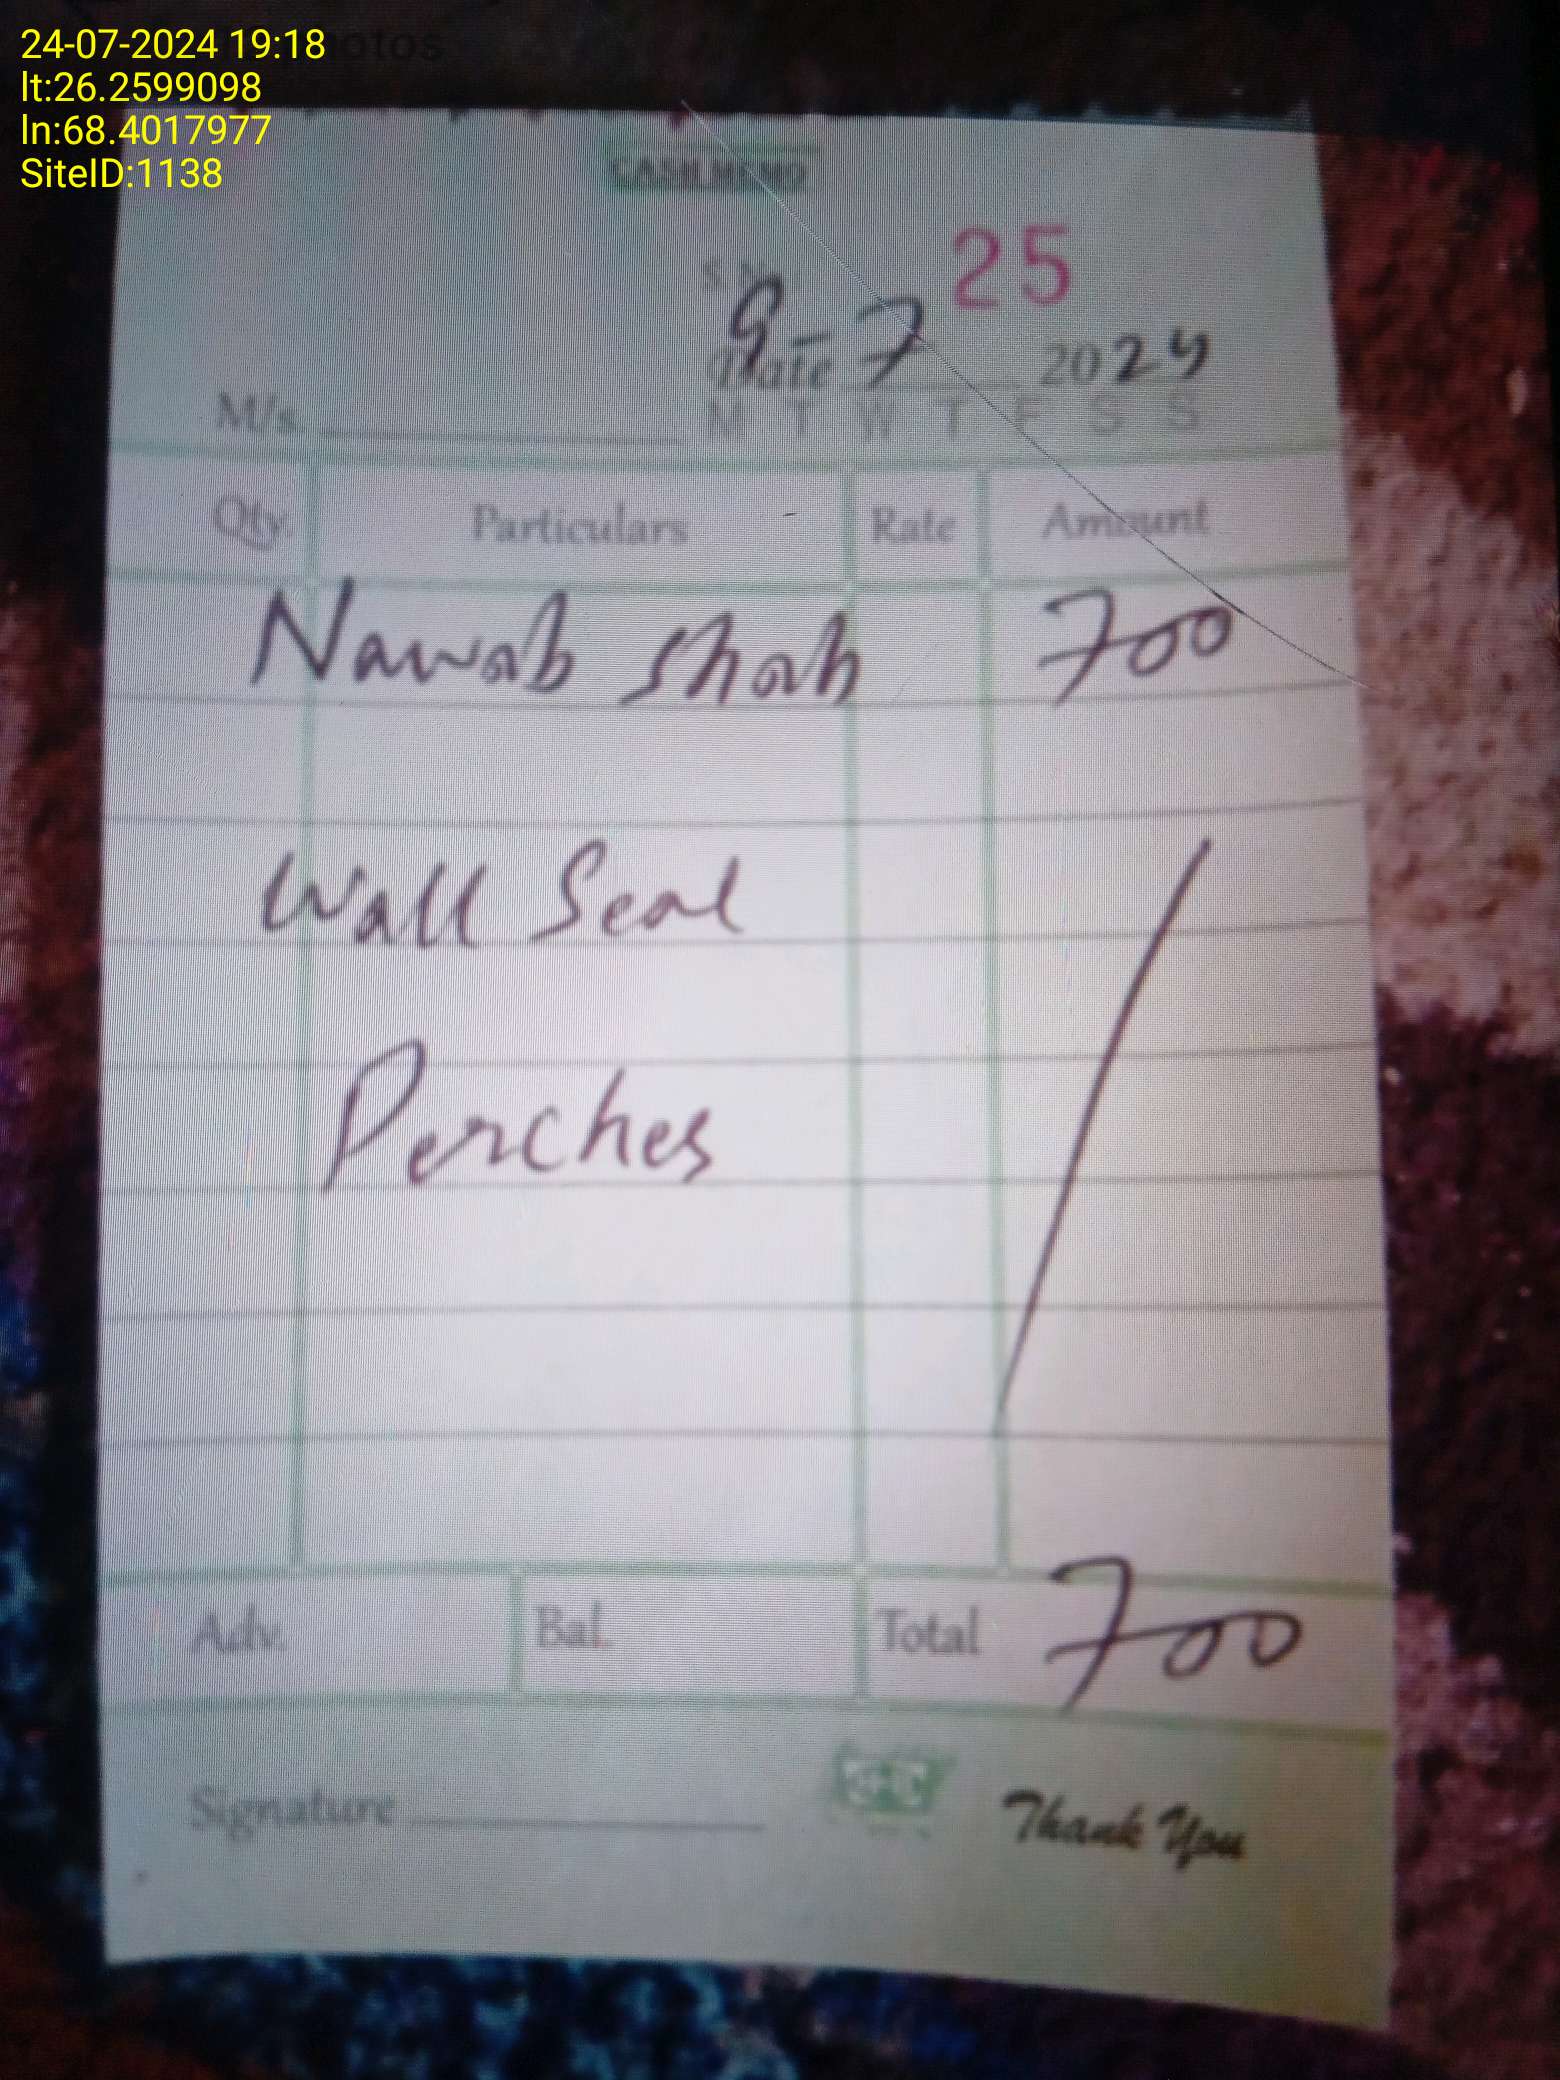 24-07-2024 19:18
lt:26.2599098
ln:68.4017977
SiteID:1138
CASH MEMO
25
Date 9-7 2024
M/s. M T W T F S S
Qty. Particulars Rate Amount
Nawab Shah 700
Wall Seal
Perches
Adv. Bal. Total 700
Signature Thank You